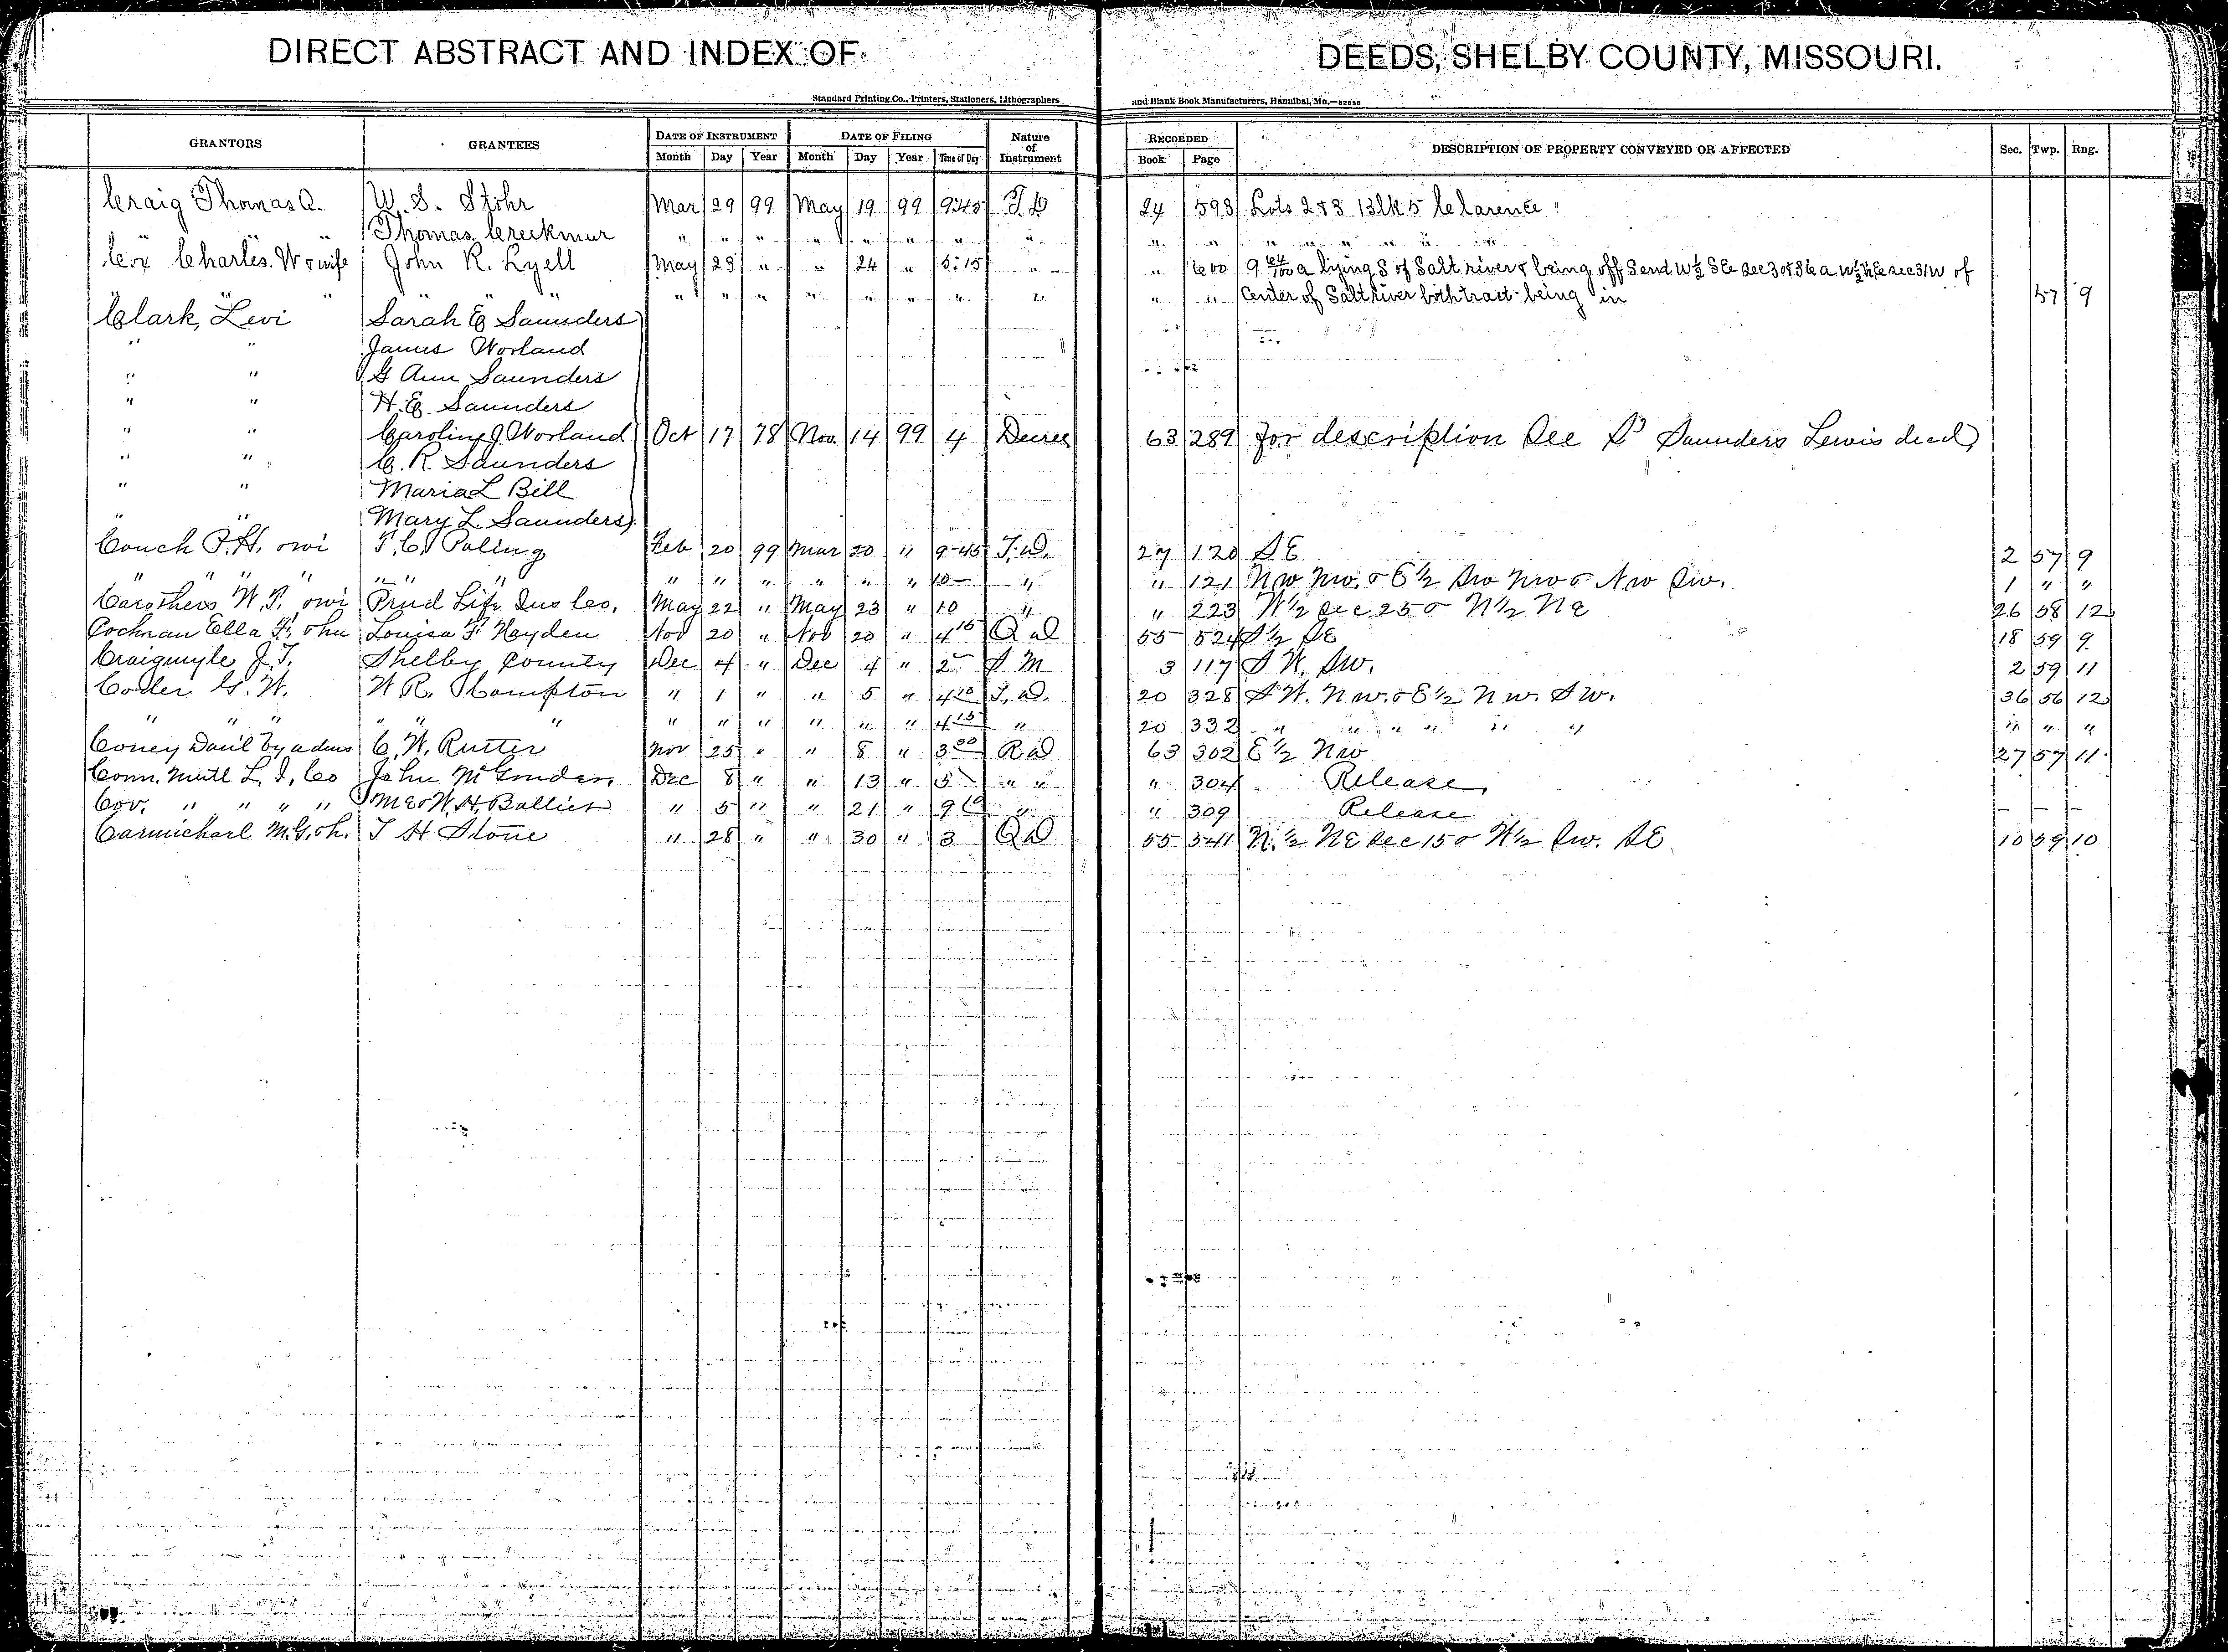 DIRECT ABSTRACT AND INDEX OF DEEDS, SHELBY COUNTY, MISSOURI.
Standard Printing Co., Printers, Stationers, Lithographers and Blank Book Manufacturers, Hannibal, Mo.
GRANTORS GRANTEES DATE OF INSTRUMENT DATE OF FILING Nature of Instrument RECORDED DESCRIPTION OF PROPERTY CONVEYED OR AFFECTED Sec. Twp. Rng.
Month Day Year Month Day Year Time of Day Book Page
Craig Thomas A. W. S. Stohr Mar 29 99 May 19 99 945 T. D 24 593 Lots 2 & 3 Blk 5 Clarence
" " Thomas Creekmur " " " " " " " " " " " " " " " "
Cox Charles. W & wife John R. Lyell May 23 " " 24 " 5:15 " " " 600 9 64/100 a lying S of Salt river & being off S end W½ SE Sec 3 W of
" " " " " " " " " " " " " " " " Center of Salt river both tract being in 57 9
Clark, Levi Sarah E Saunders
" " James Worland
" " G Ann Saunders
" " H. E. Saunders
" " Caroline J. Worland Oct 17 78 Nov 14 99 4 Decree 63 289 for description See Saunders Lewis decd
" " C. R. Saunders
" " Maria L Bill
" " Mary L. Saunders
Couch P. H. & wi T. C. Poling Feb 20 99 Mar 20 " 9-45 T. D. 27 120 SE 2 57 9
" " " " " " " " " " " " " 10- " " 121 NW NW. & E½ SW NW & NW SW. 1 " "
Carothers W. T. & wi Prud Life Ins Co. May 22 " May 23 " 10 " " 223 W½ Sec 25 & N½ NE 26 58 12
Cochran Ella F. & hu Louisa F Hayden Nov 20 " Nov 20 " 4 15 Q D 55 524 S½ SE 18 59 9
Craigmyle J. T. Shelby County Dec 4 " Dec 4 " 2 S M 3 117 S W. SW. 2 59 11
Coder G. W. W R. Compton " 1 " " 5 " 4 10 T. D. 20 328 S W. NW. & E½ NW. SW. 36 56 12
" " " " " " " " " " " " 4 15 " 20 332 " " " " " " " " "
Coney Dan'l by adms C. W. Rutter Nov 25 " " 8 " 3 30 R D 63 302 E½ NW 27 57 11
Conn. Mutl L. I. Co John McGruder Dec 8 " " 13 " 5 " " " 304 Release
Cov. " " " " M & W. H. Ballier " 5 " " 21 " 9 10 " " 309 Release - - -
Carmichael M. G. & h. T H Stone " 28 " " 30 " 3 Q D 55 541 N. ½ NE Sec 15 & W½ SW. SE 10 59 10